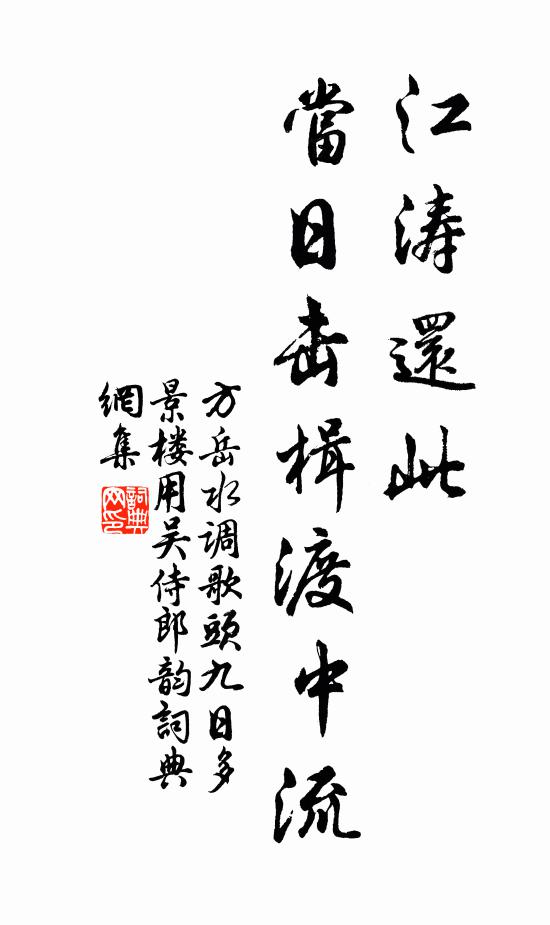 江涛還此
當日击楫渡中流
方岳水调歌頭九日多
景楼用吴侍郎韵詞典
網集
詞典
网印